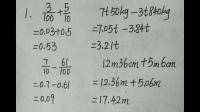 1. 3/100 + 5/10
=0.03+0.5
=0.53
7/10 - 61/100
=0.7-0.61
=0.09
7t50kg-3t840kg
=7.05t-3.84t
=3.21t
12m36cm+5m6cm
=12.36m+5.06m
=17.42m